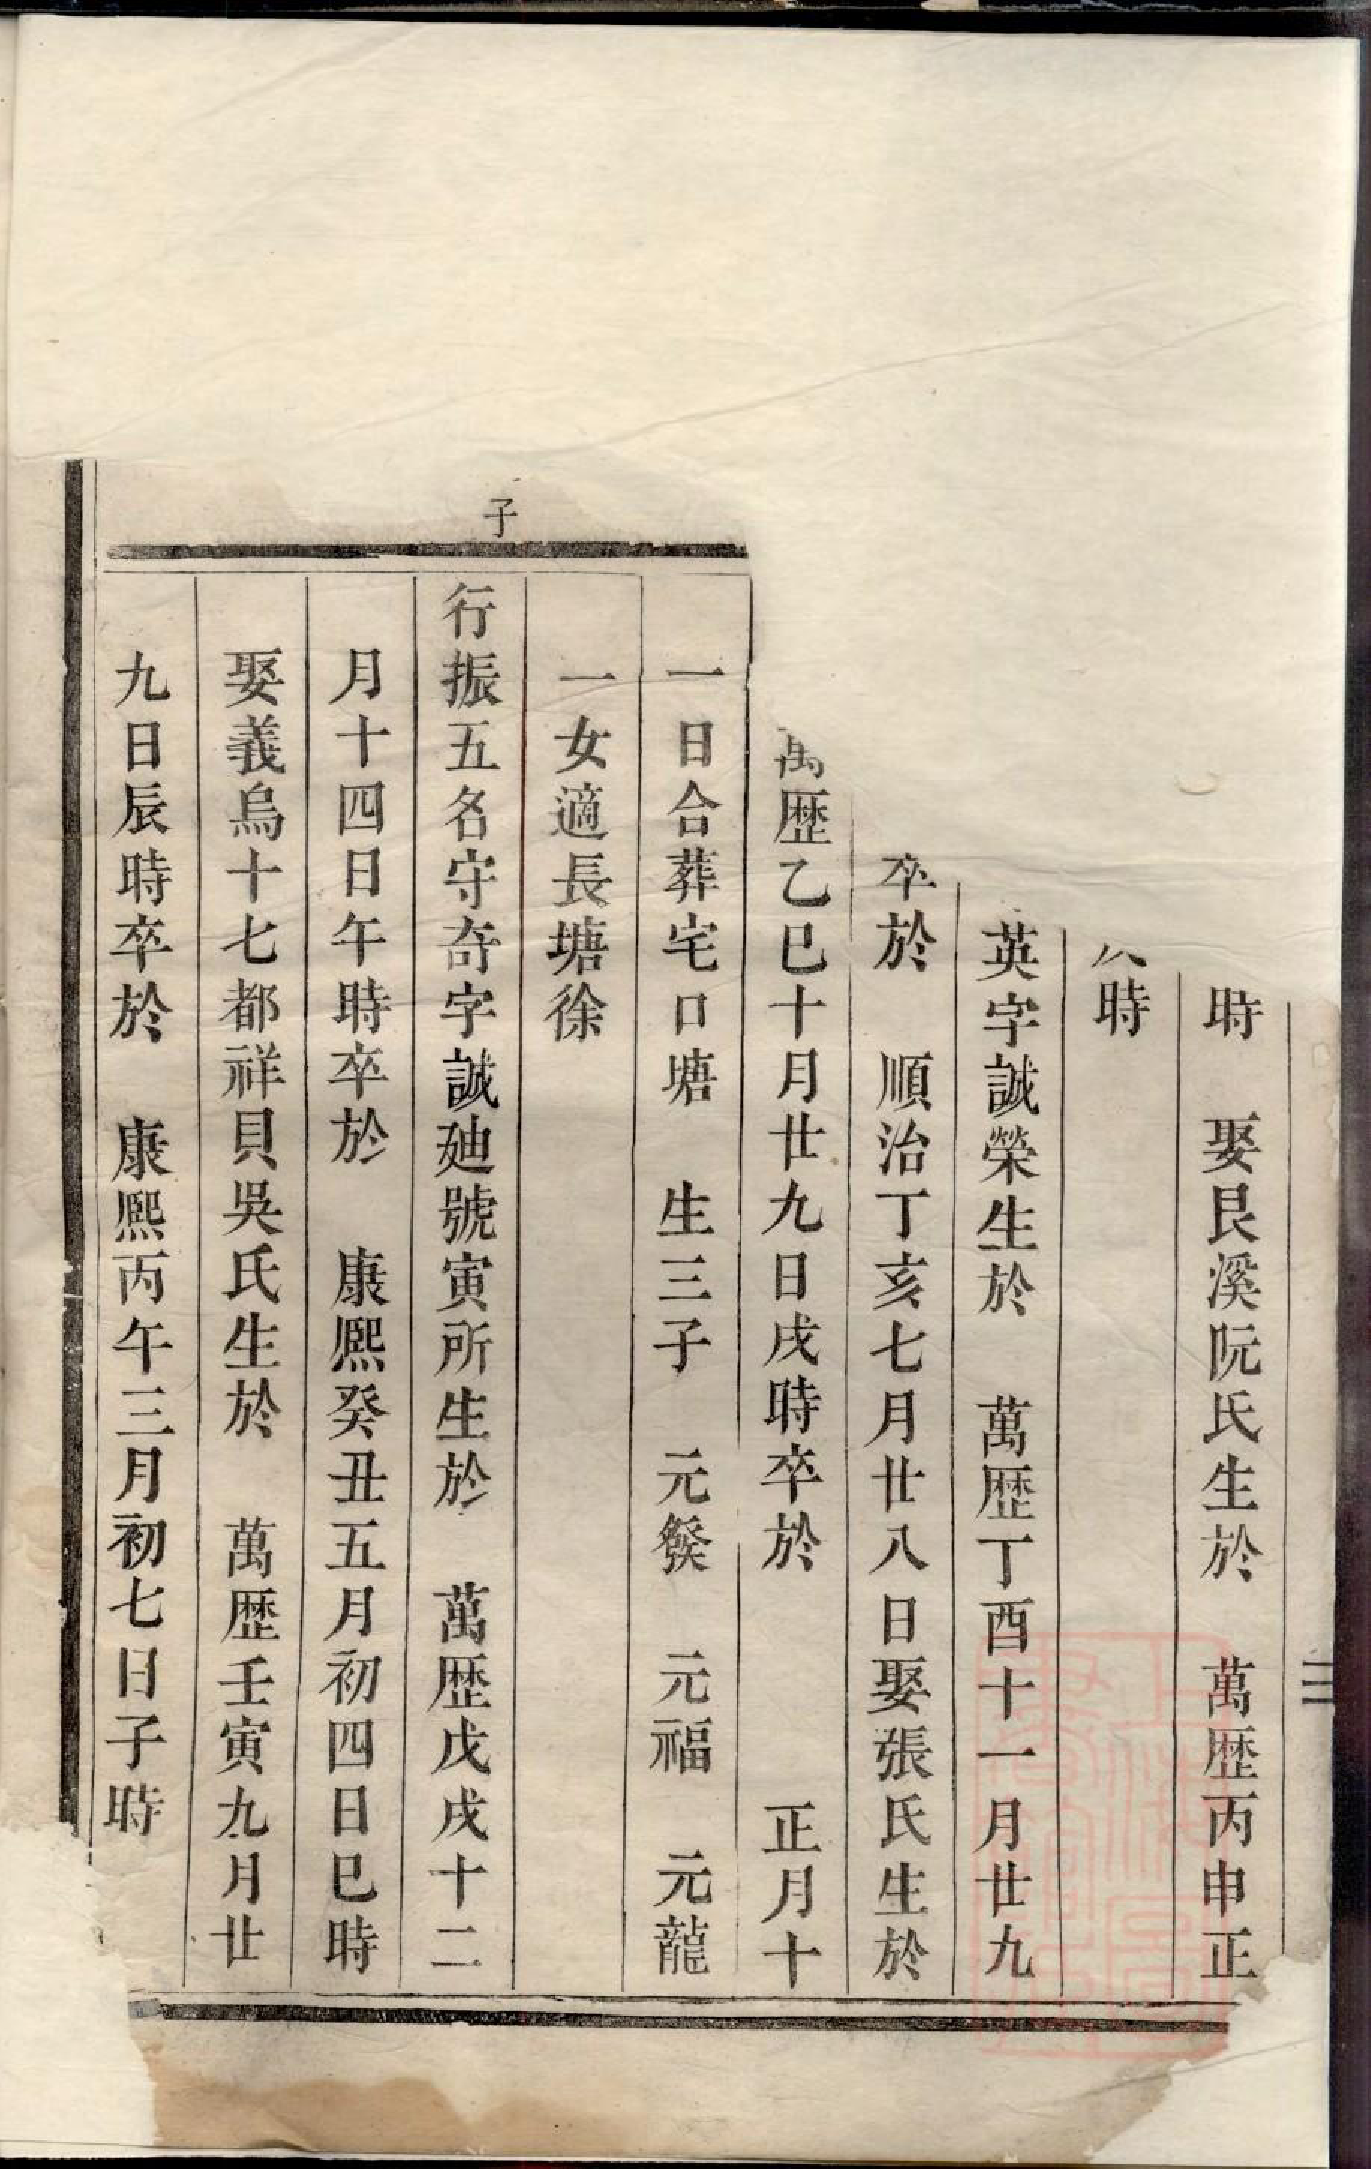 時　娶艮溪阮氏生於　萬歷丙申正
時
英字誠榮生於　萬歷丁酉十一月廿九
卒於　順治丁亥七月廿八日娶張氏生於
萬歷乙巳十月廿九日戌時卒於　正月十
一日合葬宅口塘　生三子　元　元福　元龍
一女適長塘徐
子
行振五名守奇字誠廸號寅所生於　萬歷戊戌十二
月十四日午時卒於　康熙癸丑五月初四日巳時
娶義烏十七都祥貝吳氏生於　萬歷壬寅九月廿
九日辰時卒於　康熙丙午三月初七日子時